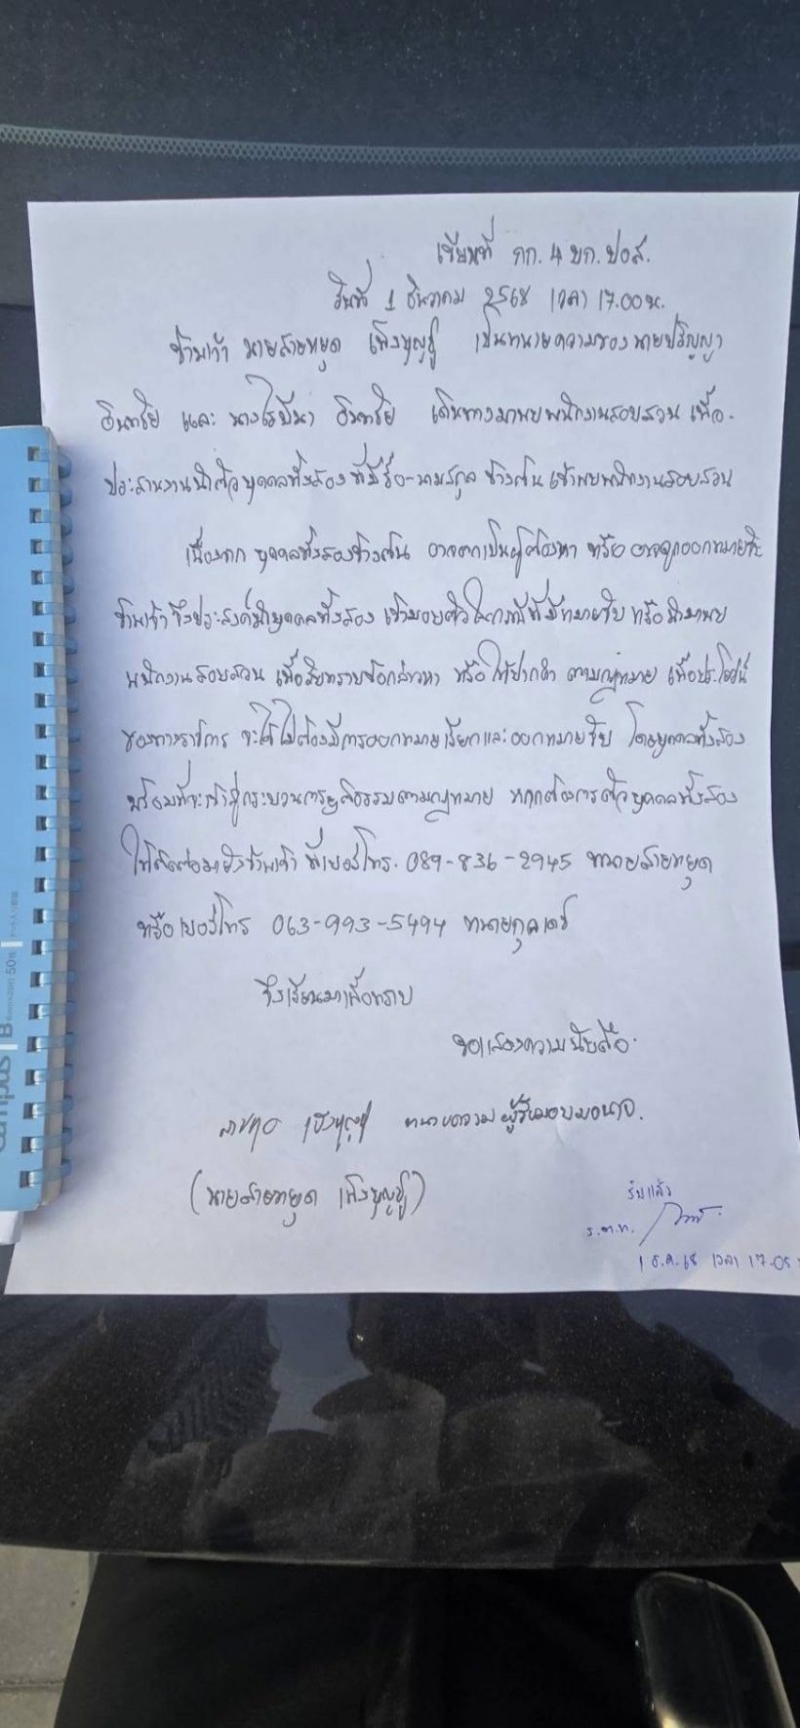 เขียนที่ กก.4 บก.ปอส.
วันที่ 1 ธันวาคม 2568 เวลา 17.00 น.
ข้าพเจ้า นายสายหยุด เพ็งบุญชู เป็นทนายความของ นายปริญญา
อินทชัย และ นางโรบีนา อินทชัย เดินทางมาพบพนักงานสอบสวน เพื่อ
ประสานงานนำตัวบุคคลทั้งสอง ที่มีชื่อ-นามสกุล ข้างต้น เข้าพบพนักงานสอบสวน
เนื่องจาก บุคคลทั้งสองข้างต้น อาจตกเป็นผู้ต้องหา หรือ อาจถูกออกหมายจับ
ข้าพเจ้า จึงประสงค์นำบุคคลทั้งสอง เข้ามอบตัวในกรณีที่มีหมายจับ หรือนำมาพบ
พนักงานสอบสวน เพื่อรับทราบข้อกล่าวหา หรือ ให้ปากคำ ตามกฎหมาย เพื่อประโยชน์
ของทางราชการ จะได้ไม่ต้องมีการออกหมายเรียกและออกหมายจับ โดยบุคคลทั้งสอง
พร้อมที่จะเข้าสู่กระบวนการยุติธรรมตามกฎหมาย หากต้องการตัวบุคคลทั้งสอง
ให้ติดต่อมายังข้าพเจ้า ที่เบอร์โทร. 089-836-2945 ทนายสายหยุด
หรือ เบอร์โทร 063-993-5494 ทนายกุลเดช
จึงเรียนมาเพื่อทราบ
ขอแสดงความนับถือ
ทนายความ ผู้รับมอบอำนาจ.
(นายสายหยุด เพ็งบุญชู)
รับแล้ว
ร.ต.ท.
1 ธ.ค. 68 เวลา 17.05
Campus
B
50